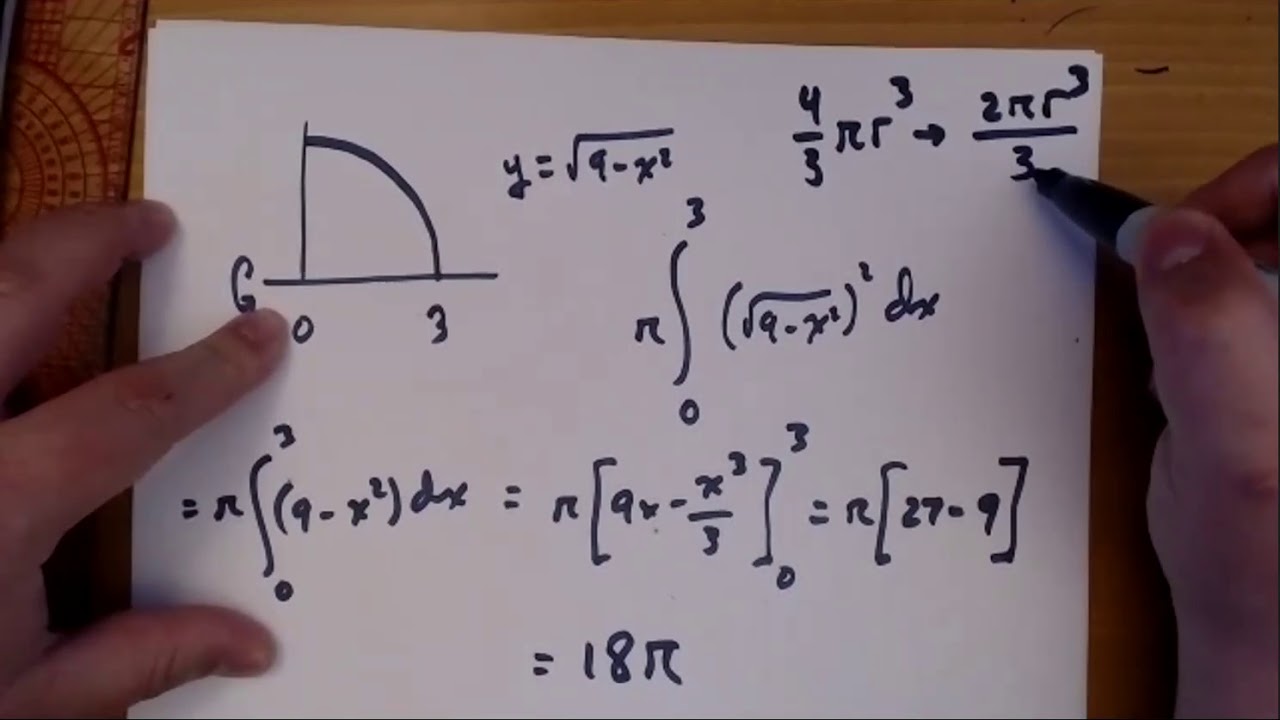 y = √(9-x²)
4/3 πr³ → 2πr³/3
0 3
π ∫₀³ (√(9-x²))² dx
= π ∫₀³ (9-x²) dx = π [9x - x³/3]₀³ = π [27-9]
= 18π